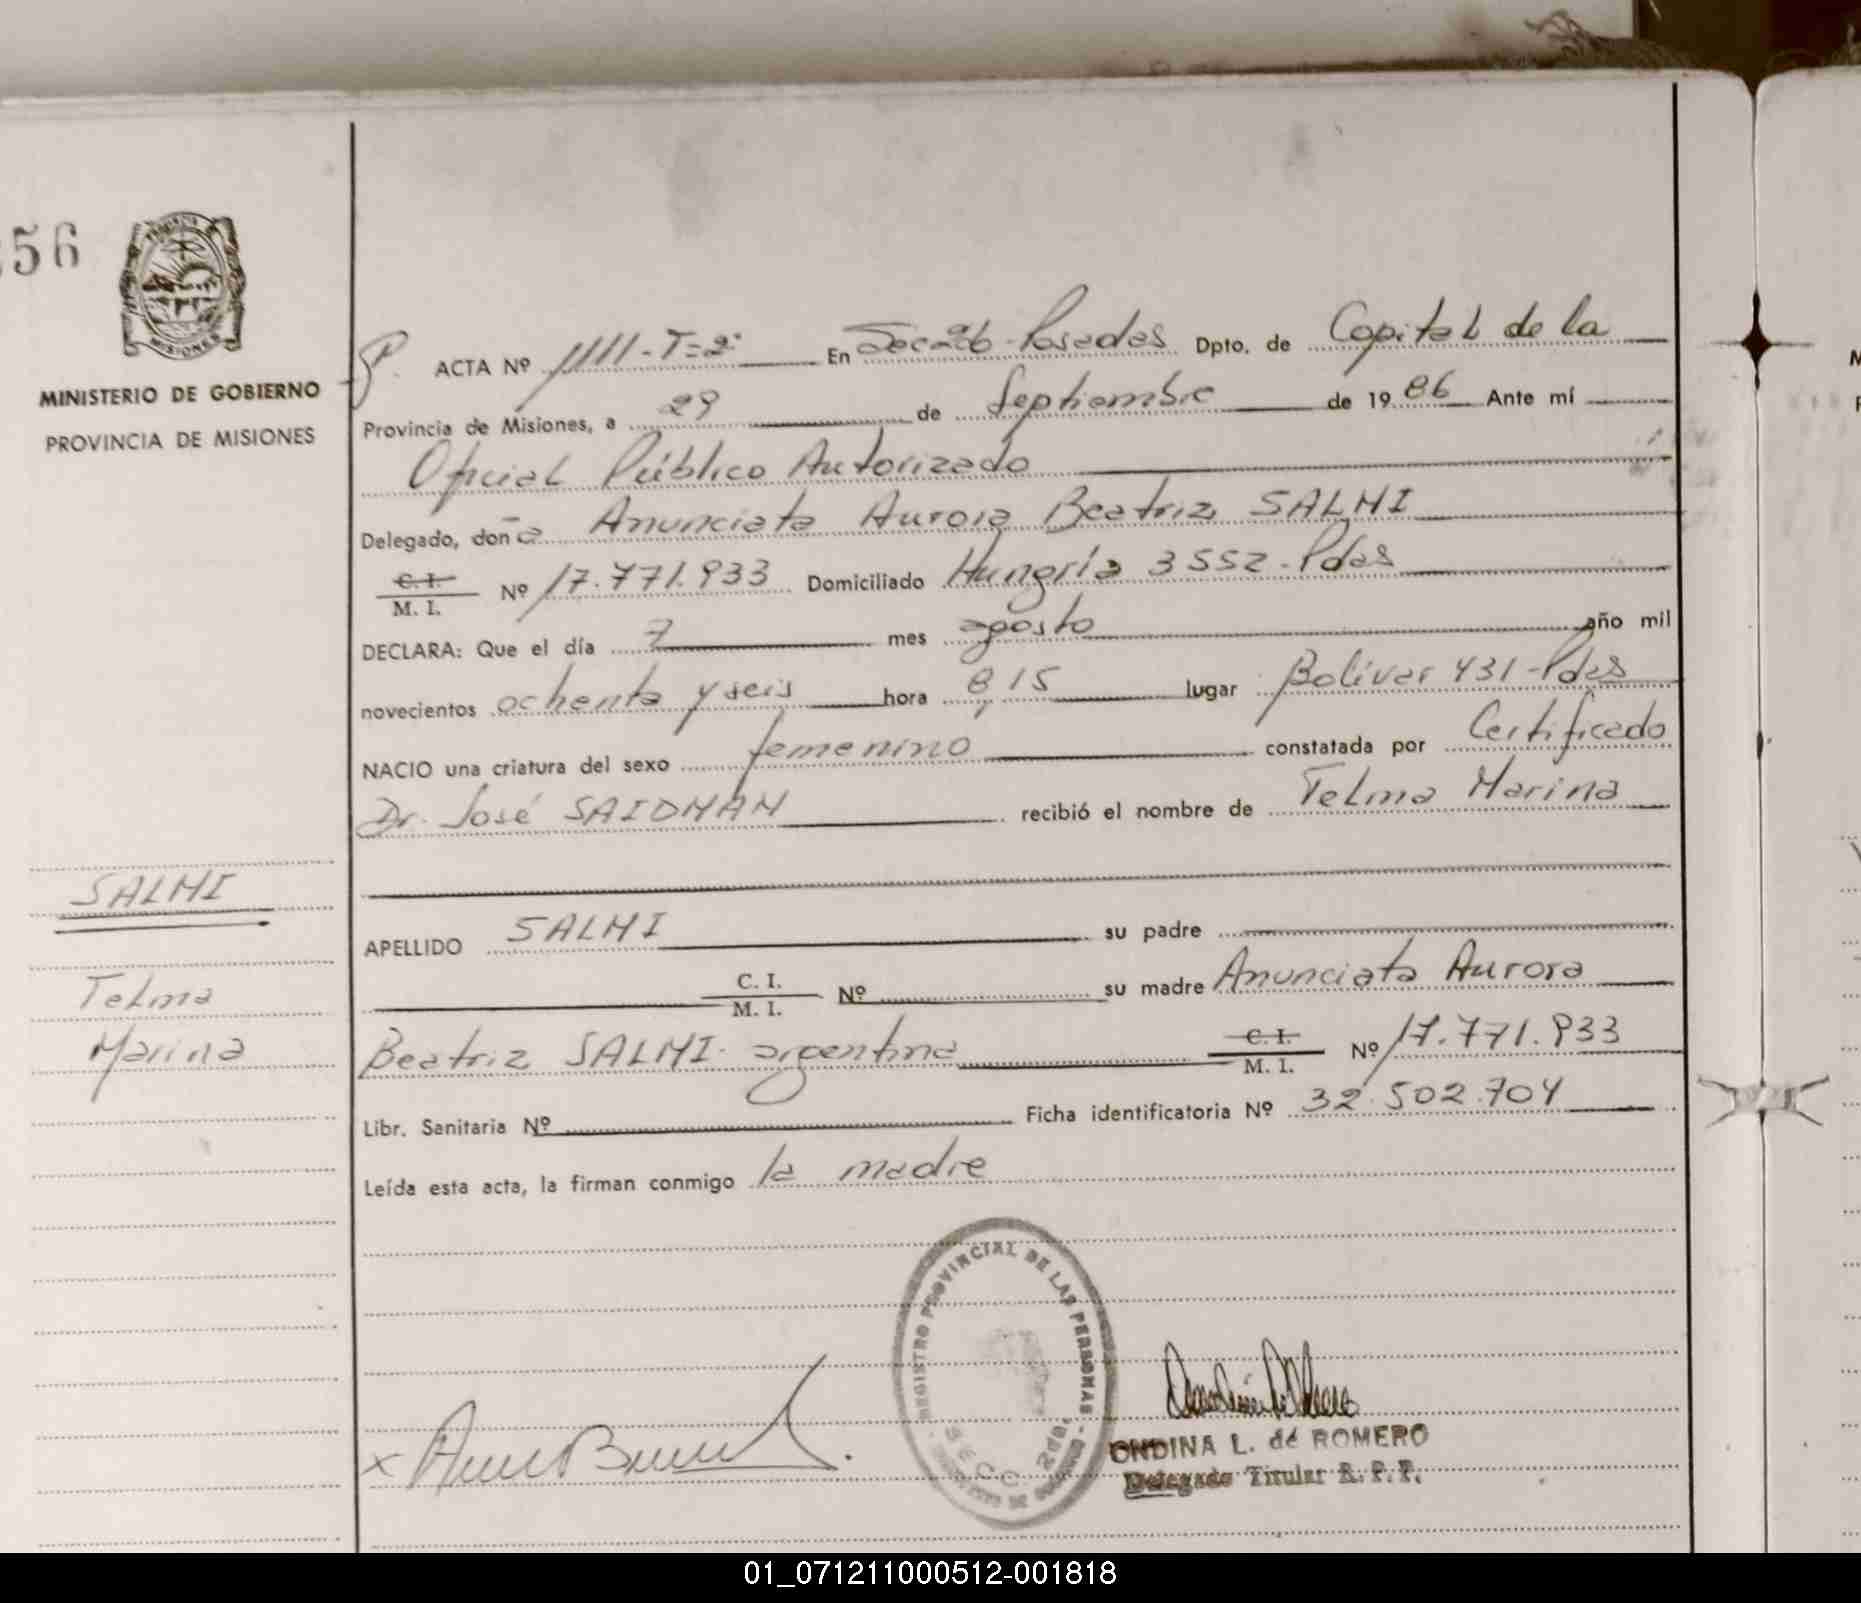 56
PROVINCIA
MISIONES
MINISTERIO DE GOBIERNO
PROVINCIA DE MISIONES
ACTA Nº 1111-T=2º En Sec 2b-Posadas Dpto. de Capital de la
Provincia de Misiones, a 29 de Septiembre de 1986 Ante mí
Oficial Público Autorizado
Delegado, doña Anunciata Aurora Beatriz SALMI
C. I.
M. I. Nº 17.771.933 Domiciliado Hungría 3552-Pdas
DECLARA: Que el día 7 mes agosto año mil
novecientos ochenta y seis hora 8,15 lugar Bolívar 431-Pdas
NACIO una criatura del sexo femenino constatada por Certificado
Dr. José SAIDMAN recibió el nombre de Telma Marina
SALMI
APELLIDO SALMI su padre
Telma
C. I.
M. I. Nº su madre Anunciata Aurora
Marina
Beatriz SALMI-argentina C. I.
M. I. Nº 17.771.933
Libr. Sanitaria Nº Ficha identificatoria Nº 32.502.704
Leída esta acta, la firman conmigo la madre
REGISTRO PROVINCIAL DE LAS PERSONAS
SECC. 2da.
ONDINA L. de ROMERO
Delegado Titular R. P. P.
01_071211000512-001818